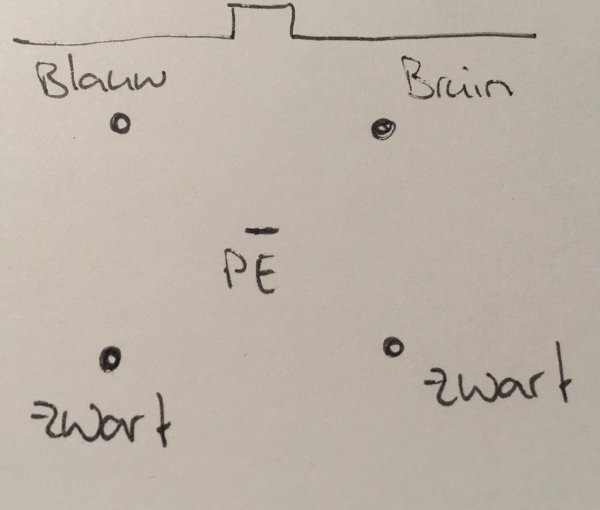 Blauw Bruin
PE
zwart
zwart